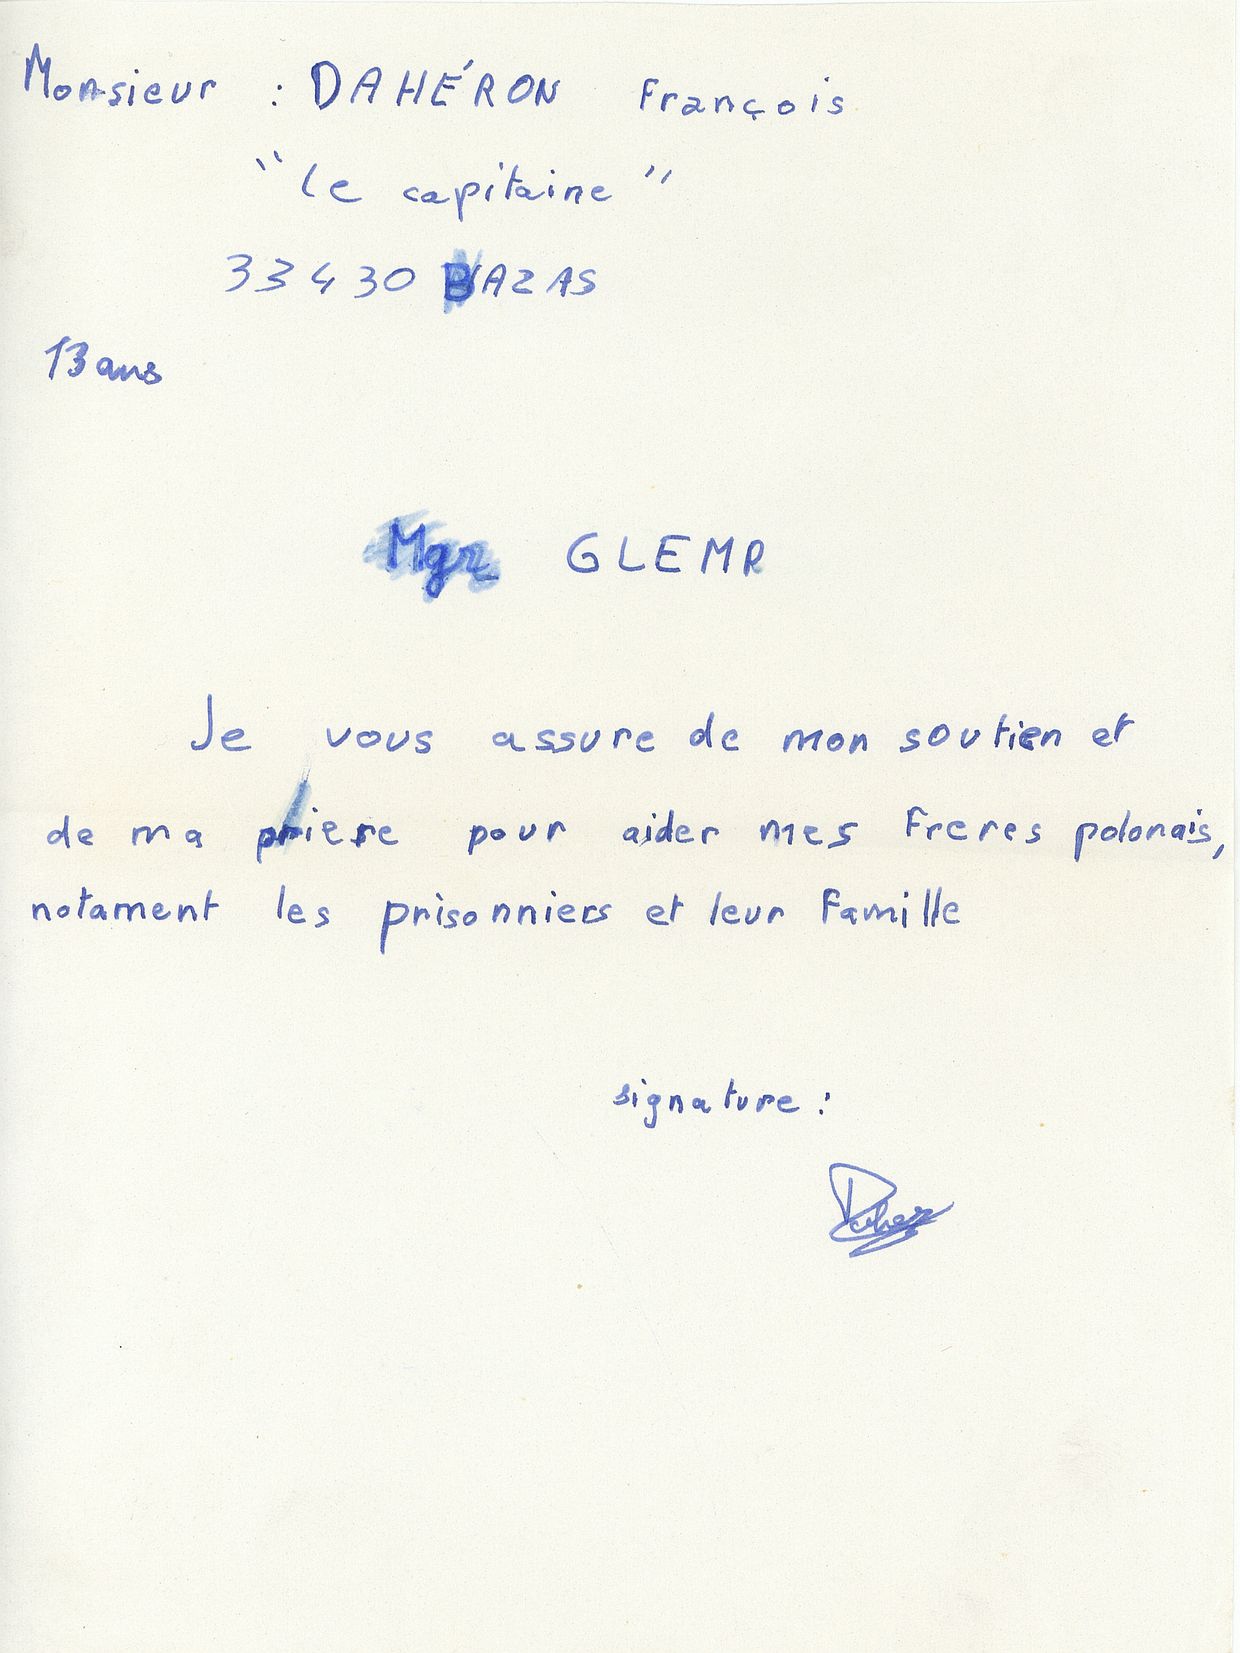 Monsieur : DAHÉRON François
"le capitaine"
33430 BAZAS
13 ans
Mgr GLEMR
Je vous assure de mon soutien et
de ma priere pour aider mes freres polonais,
notament les prisonniers et leur famille
signature :